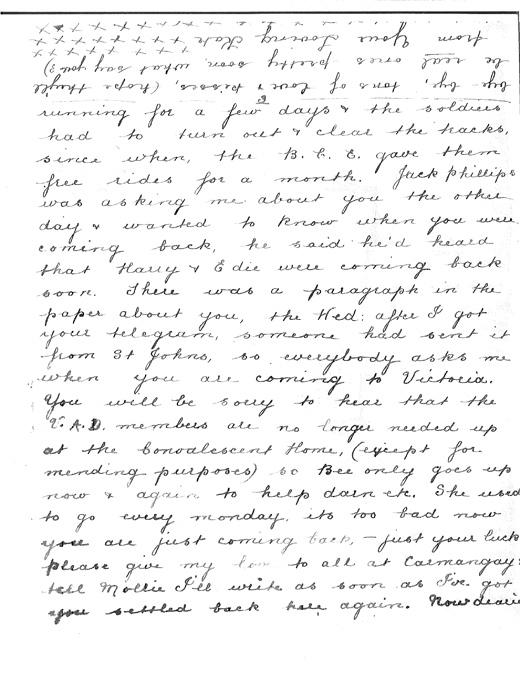 running for a few days & the soldiers
had to turn out & clear the tracks,
since when, the B. C. E. gave them
free rides for a month. Jack Phillips
was asking me about you the other
day & wanted to know when you were
coming back, he said he'd heard
that Harry & Edie were coming back
soon. There was a paragraph in the
paper about you, the Wed: after I got
your telegram, someone had sent it
from St Johns, so everybody asks me
when you are coming to Victoria.
You will be sorry to hear that the
V.A.D. members are no longer needed up
at the Convalescent Home, (except for
mending purposes) so Bee only goes up
now & again to help darn etc. She used
to go every monday, its too bad now
you are just coming back, – just your luck
please give my love to all at Carmangay:
tell Mollie I'll write as soon as I've got
you settled back here again. Now dearie
bye bye, tons of love & kisses, (hope they'll
be real ones pretty soon, what say you?)
from Your Loving
x x x x x x x x x x x
x x x x x x x x x x x